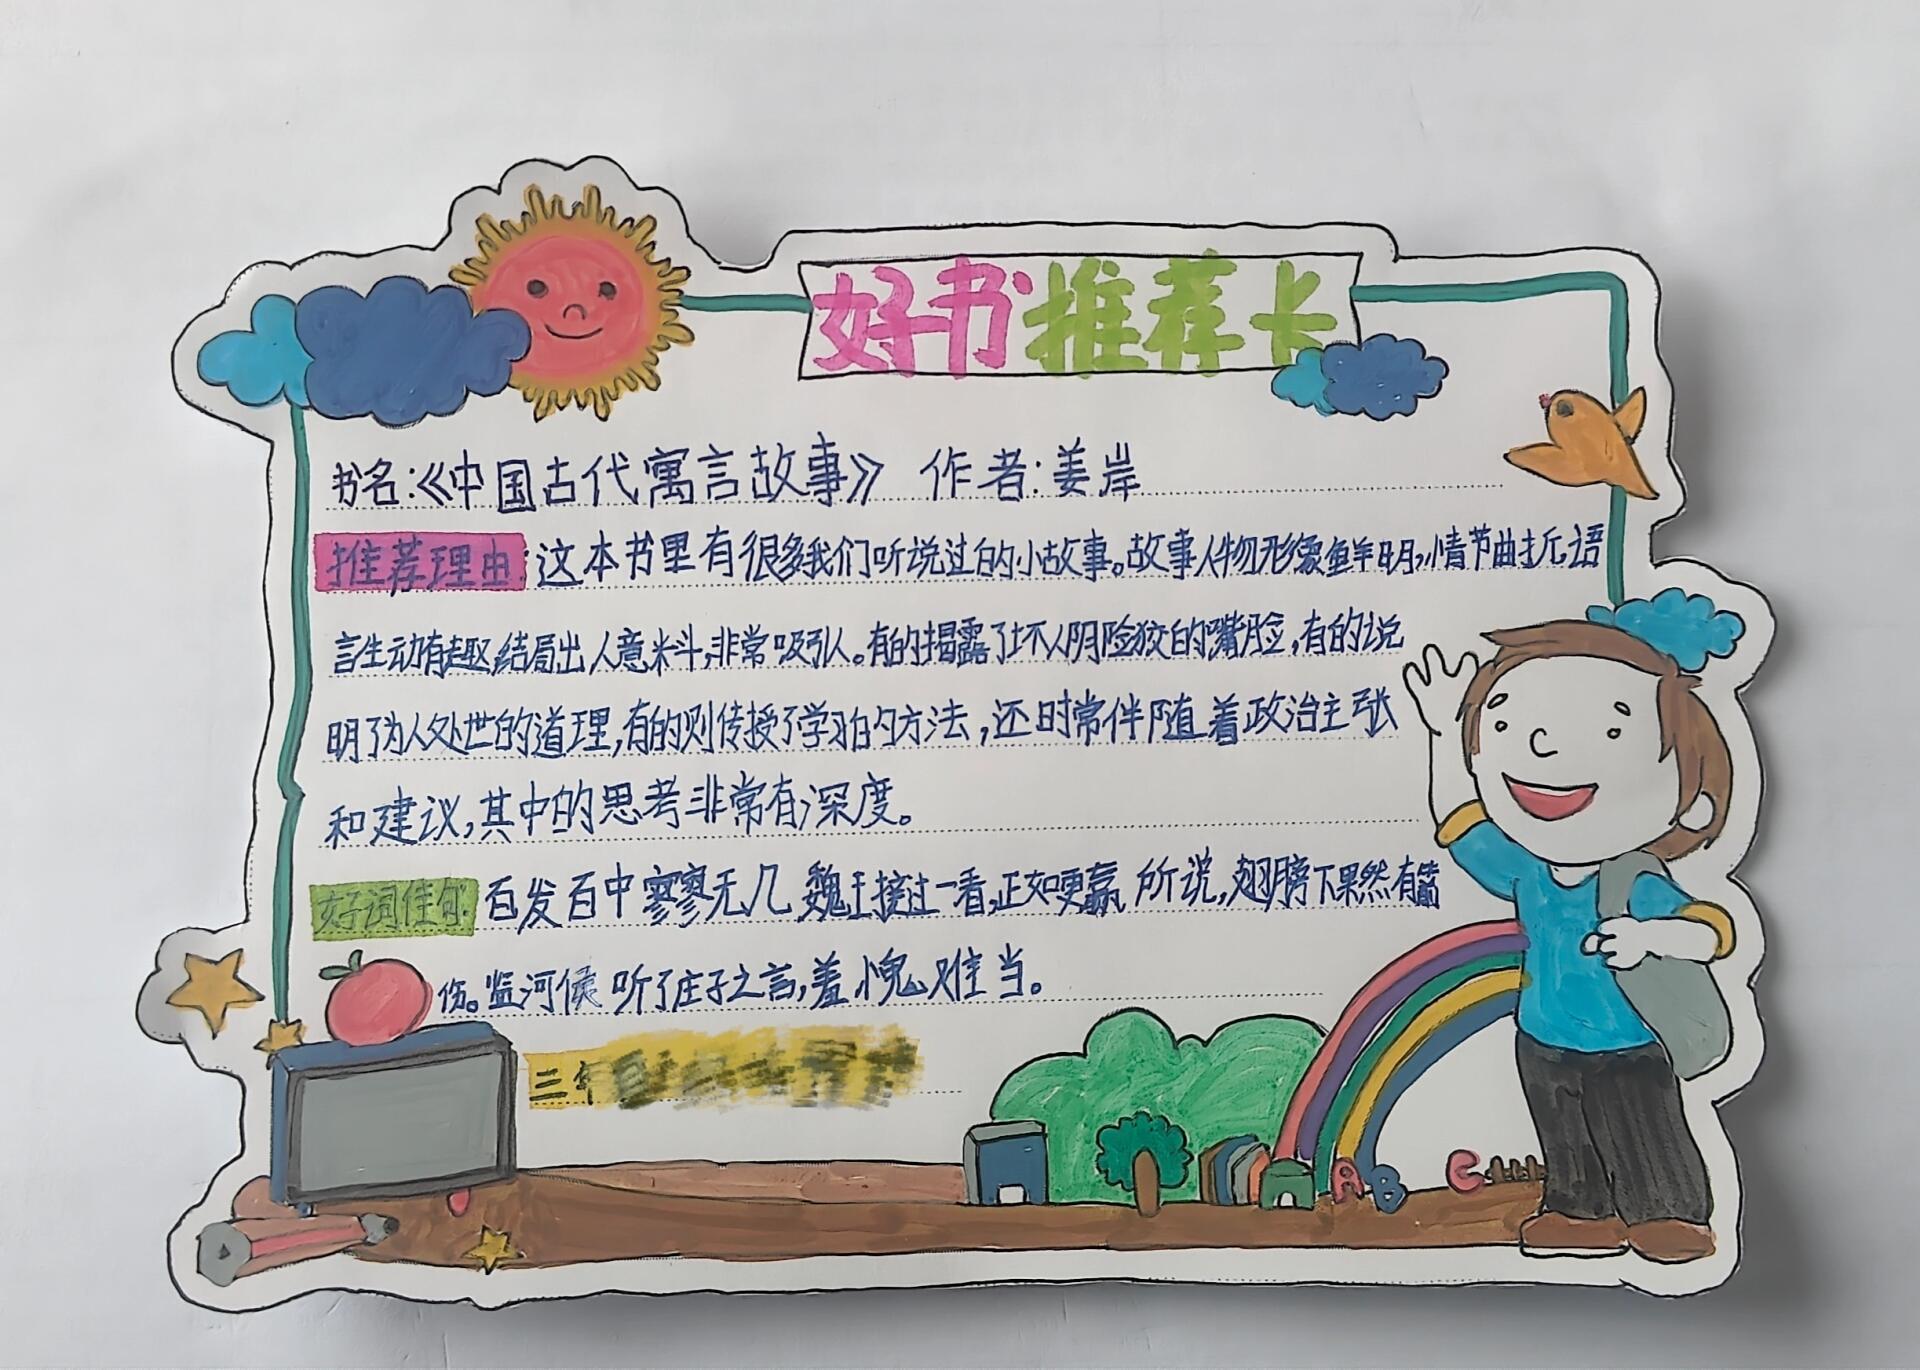 好书推荐卡
书名:《中国古代寓言故事》 作者:姜岸
推荐理由:这本书里有很多我们听说过的小故事。故事人物形像鲜明,情节曲折,语
言生动有趣,结局出人意料,非常吸引人。有的揭露了坏人阴险狡的嘴脸,有的说
明了为人处世的道理,有的则传授了学习的方法,还时常伴随着政治主张
和建议,其中的思考非常有深度。
好词佳句: 百发百中 寥寥无几 魏王接过一看,正如更羸所说,翅膀下果然有箭
伤。监河侯听了庄子之言,羞愧难当。
三年
A B C